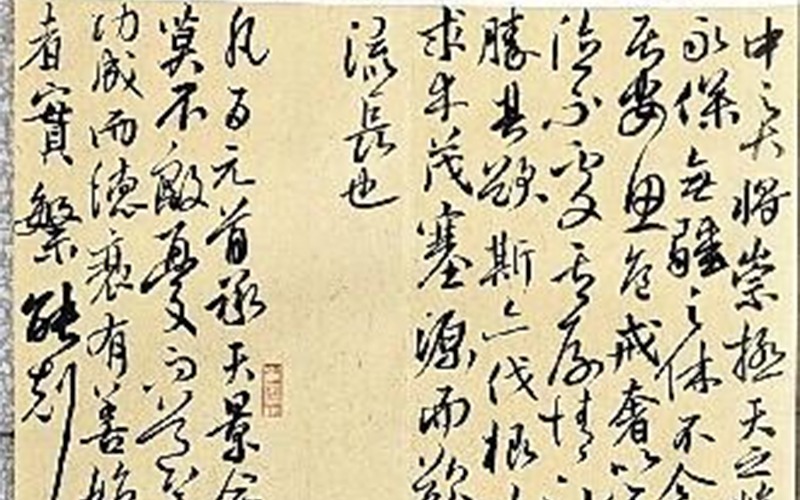 中之大将崇極天之峻
永保無疆之休不念
居安思危戒奢以
德不處其厚情
勝其欲斯亦伐根
求木茂塞源而欲
流長也
凡百元首承天景命
莫不殷憂而道
功成而德衰有善始
者實繁能剋